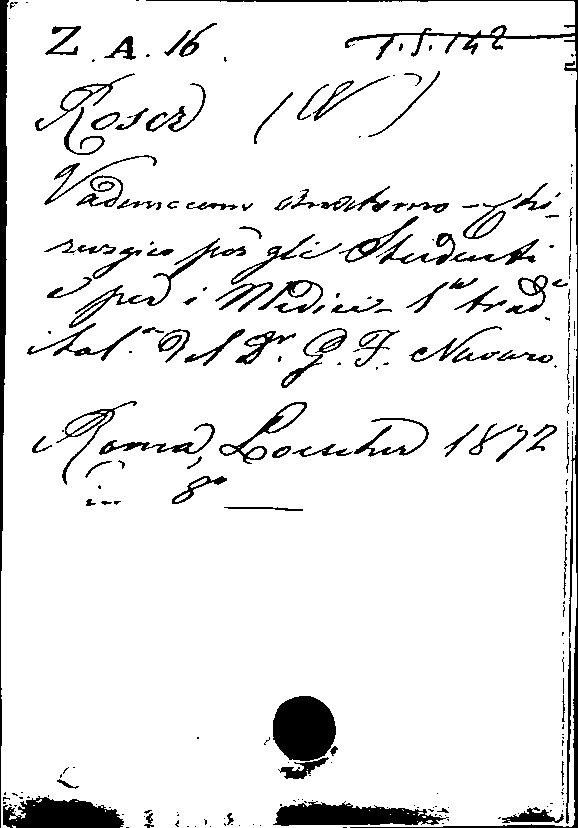 Z. A. 16. 1.S.142
Roser (W)
Vademecum anatomo-chi-
rurgico per gli Studenti
e per i Medici - 1ª trad.e
ital.ª del Dr. G. F. Navaro.
Roma, Loescher 1872
in 8º